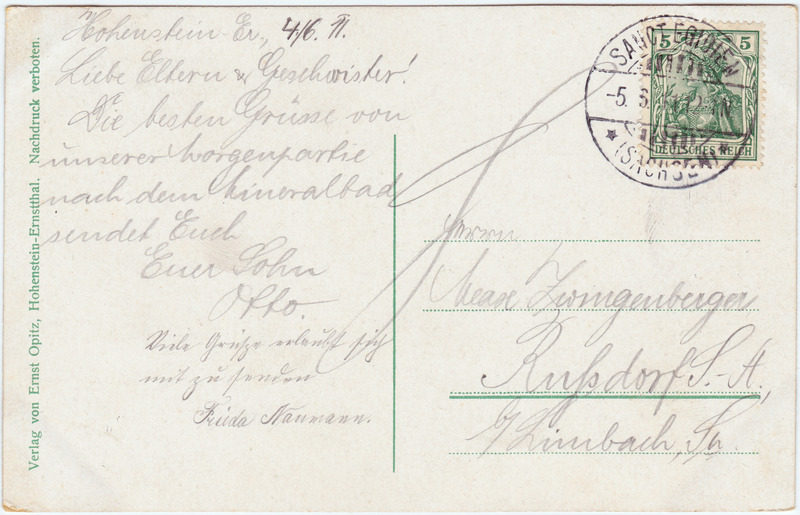 Hohenstein-Er., 4/6. 11.
Liebe Eltern & Geschwister!
Die besten Grüsse von
unserer Morgenpartie
nach dem Mineralbad
sendet Euch
Euer Sohn
Otto.
Viele Grüsse erlaubt sich
mit zu senden
Frieda Naumann.
Verlag von Ernst Opitz, Hohenstein-Ernstthal. Nachdruck verboten.
SANCT EGIDIEN
-5. 6.
* (SACHSEN)
5 5
DEUTSCHES REICH
Herrn
Zwingenberger
Rußdorf S.-A.
b/Limbach, Sa.